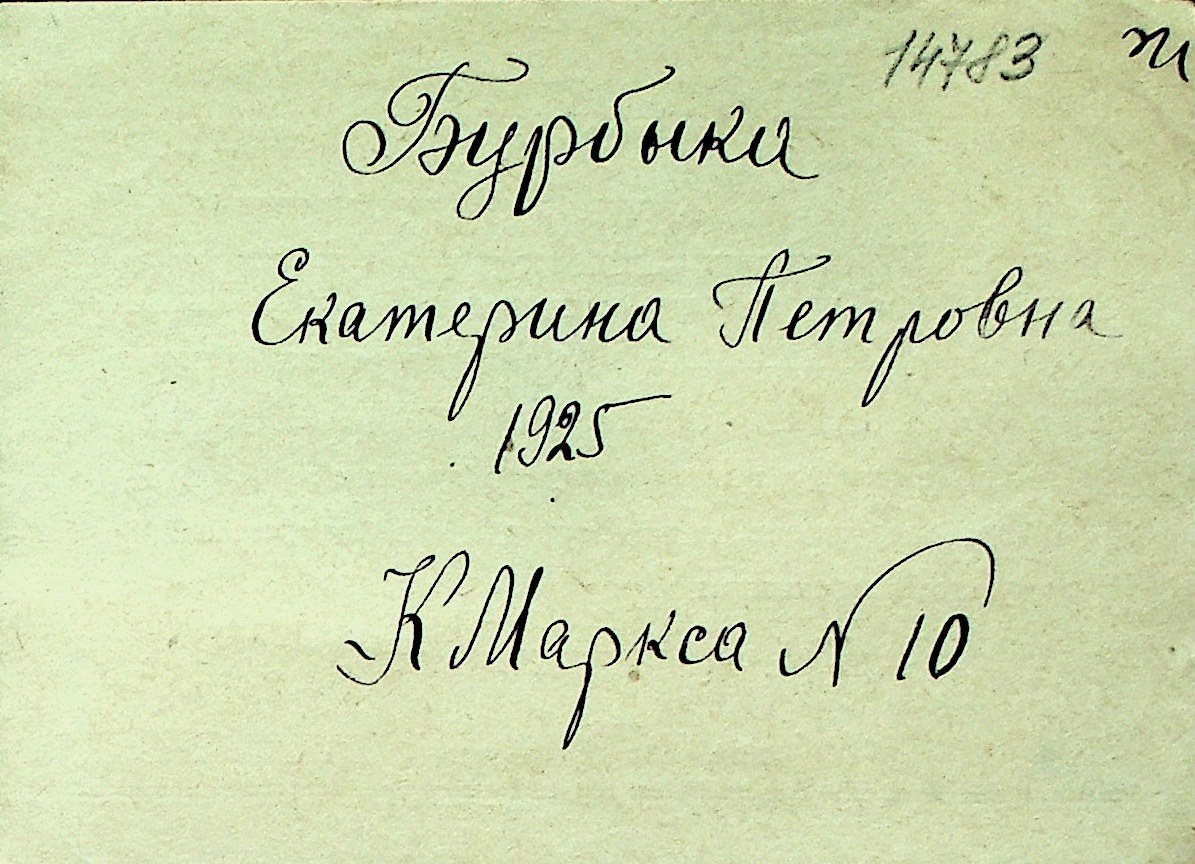 14783
Бурбыка
Екатерина Петровна
1925
К Маркса N 10